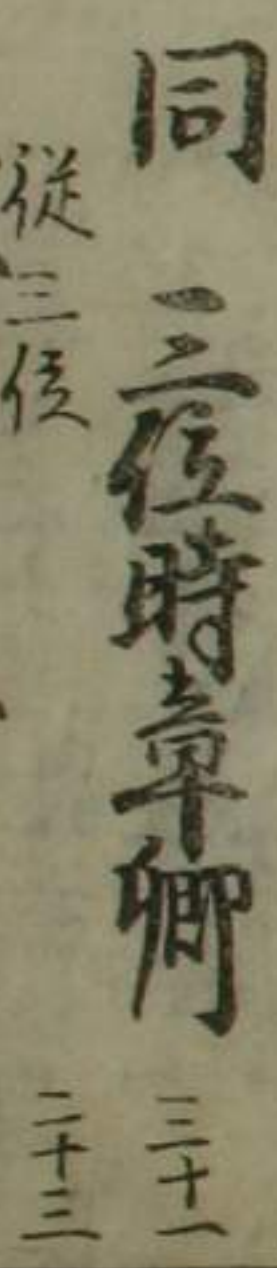 同 三位時章卿 三十一
従三位 二十三